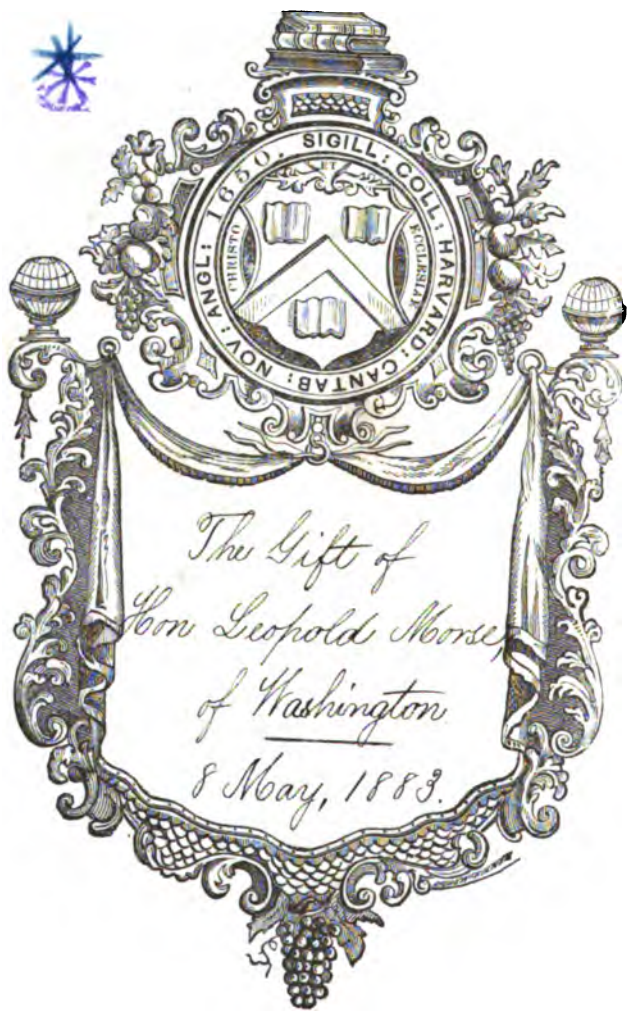 SIGILL: COLL: HARVARD: CANTAB: NOV: ANGL: 1650.
ET
CHRISTO
ECCLESIÆ
The Gift of
Hon Leopold Morse,
of Washington
8 May, 1883.